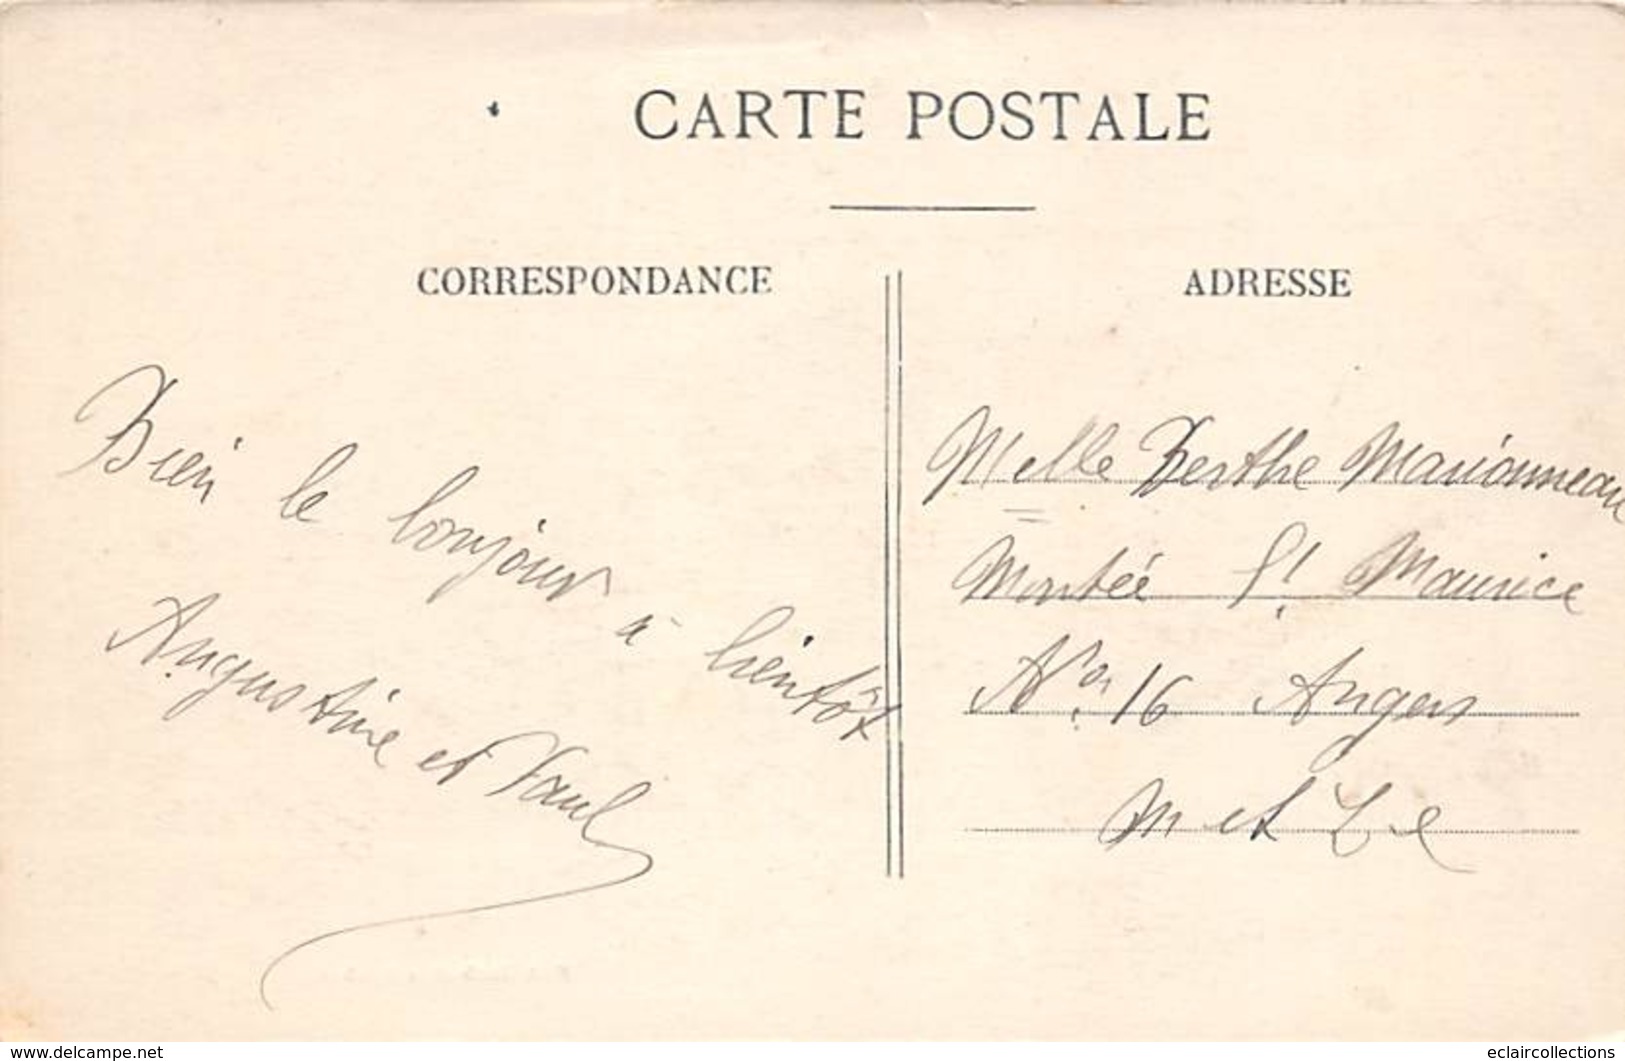 CARTE POSTALE
CORRESPONDANCE
Bien le bonjour à bientôt
Augustine et Paul
ADRESSE
Melle Berthe Marionneau
Montée St Maurice
No 16 Angers
M et Le
www.delcampe.net
eclaircollections